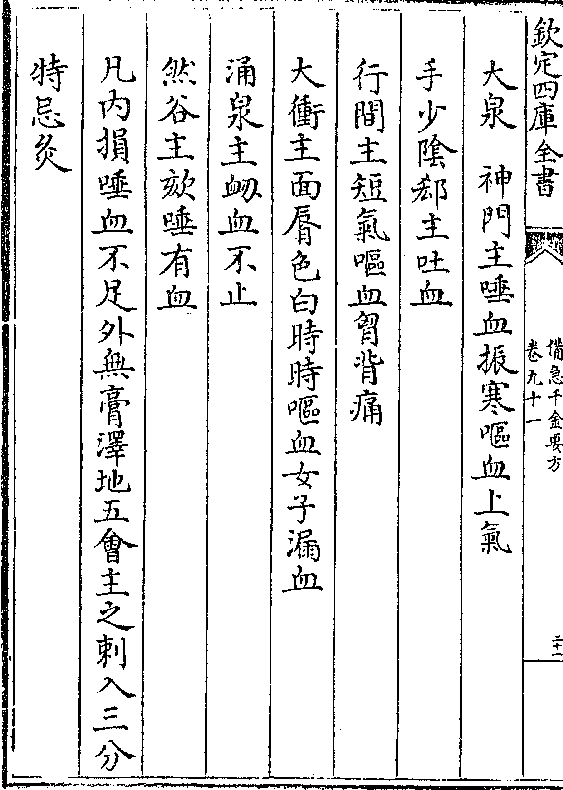 欽定四庫全書
備急千金要方
卷九十一
二十一
大泉　神門主唾血振寒嘔血上氣
手少陰郄主吐血
行間主短氣嘔血胷背痛
大衝主面脣色白時時嘔血女子漏血
涌泉主衂血不止
然谷主欬唾有血
凡內損唾血不足外無膏澤地五會主之刺入三分
特忌灸